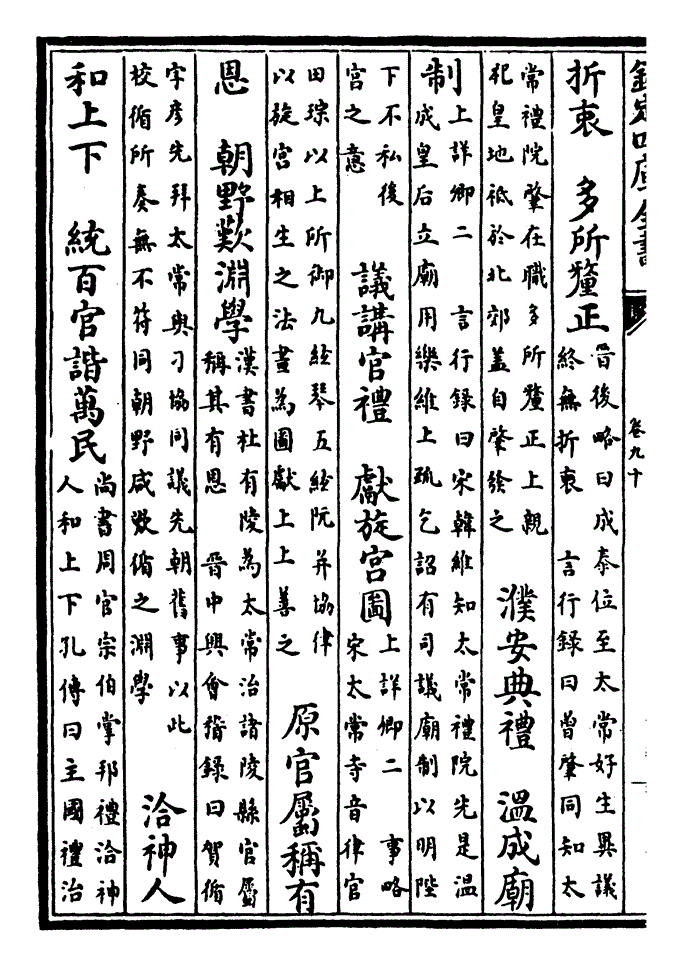 欽定四庫全書
卷九十
折衷　多所釐正
晉後略曰成泰位至太常好生異議
終無折衷　言行録曰曾肇同知太
常禮院肇在職多所釐正上親
祀皇地祇於北郊蓋自肇發之
濮安典禮　溫成廟
制
上詳卿二　言行録曰宋韓維知太常禮院先是溫
成皇后立廟用樂維上疏乞詔有司議廟制以明陛
下不私後
宮之意
議講官禮　獻旋宮圖
上詳卿二　事略
宋太常寺音律官
田琮以上所御九絃琴五絃阮并協律
以旋宮相生之法畫為圖獻上上善之
原官屬稱有
恩　朝野歎淵學
漢書杜有陵為太常治諸陵縣官屬
稱其有恩　晉中興會稽録曰賀循
字彥先拜太常與刁協同議先朝舊事以此
校循所奏無不符同朝野咸歎循之淵學
洽神人
和上下　統百官諧萬民
尚書周官宗伯掌邦禮洽神
人和上下孔傳曰主國禮治